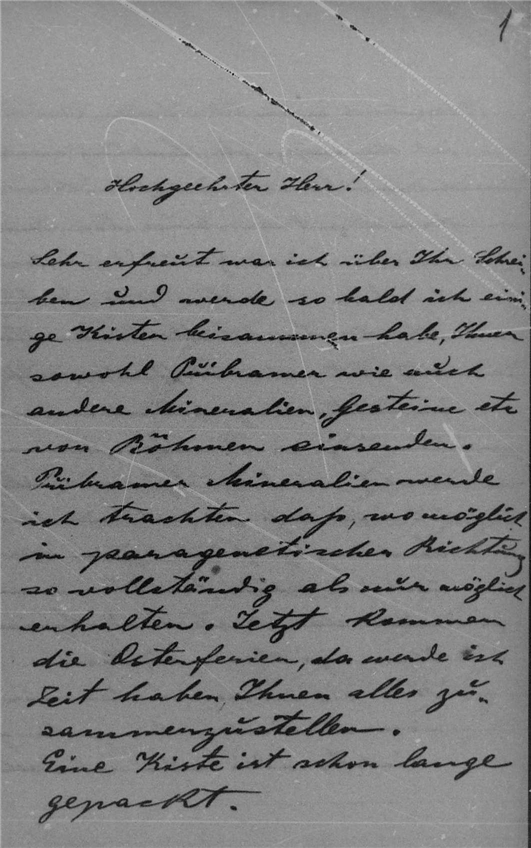 1
Hochgeehrter Herr!
Sehr erfreut war ich über Ihr Schrei-
ben und werde so bald ich eini-
ge Kisten beisammen habe, Ihnen
sowohl Přibramer wie auch
andere Mineralien, Gesteine etc
von Böhmen einsenden.
Přibramer Mineralien werde
ich trachten daß, wo möglich
in paragenetischer Richtung
so vollständig als nur möglich
erhalten. Jetzt kommen
die Osterferien, da werde ich
Zeit haben, Ihnen alles zu-
sammenzustellen.
Eine Kiste ist schon lange
gepackt.